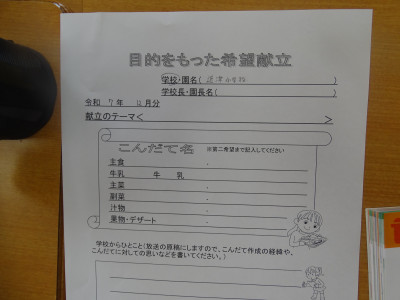 目的をもった希望献立
学校・園名( 小学校 )
学校長・園長名( )
令和 7 年 月分
献立のテーマ< >
こんだて名 ※第二希望まで記入してください
主食 ・
牛乳 牛 乳
主菜 ・
副菜 ・
汁物 ・
果物・デザート ・
学校からひとこと(放送の原稿にしますので、こんだて作成の経緯や、
こんだてに対しての思いなどを書いてください。)